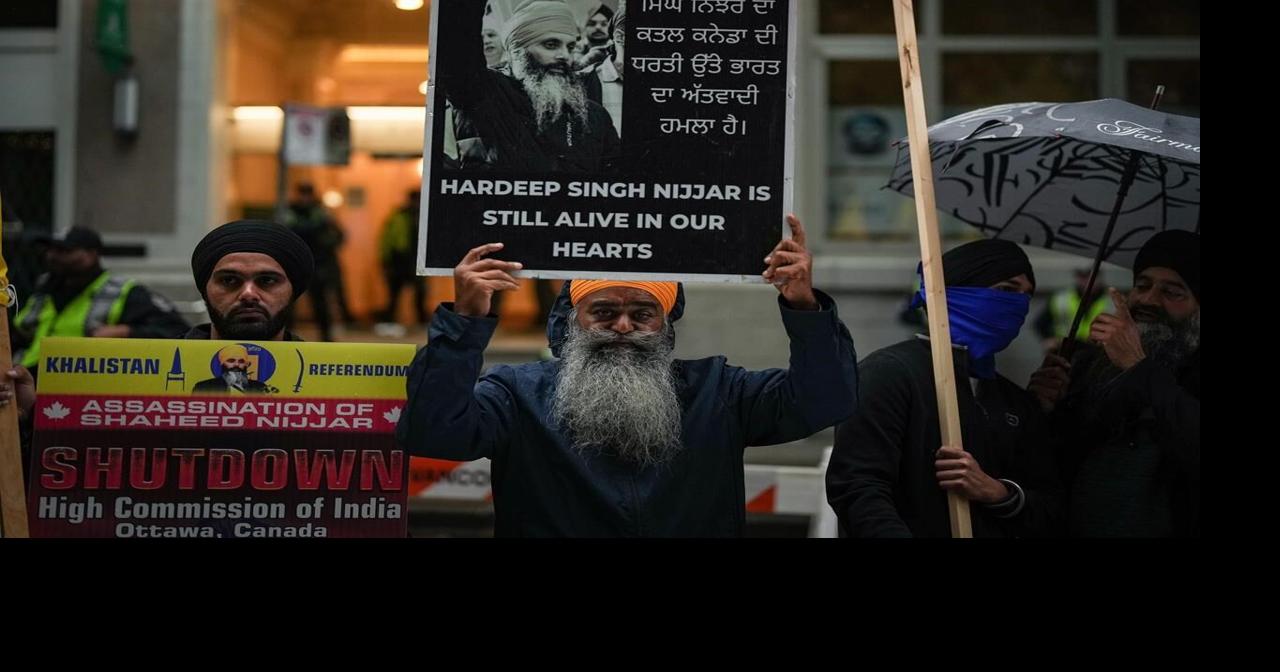 ਸਿੰਘ ਨਿੱਝਰ ਦਾ
ਕਤਲ ਕਨੇਡਾ ਦੀ
ਧਰਤੀ ਉੱਤੇ ਭਾਰਤ
ਦਾ ਅੱਤਵਾਦੀ
ਹਮਲਾ ਹੈ।
HARDEEP SINGH NIJJAR IS
STILL ALIVE IN OUR
HEARTS
KHALISTAN REFERENDUM
ASSASSINATION OF
SHAHEED NIJJAR
SHUTDOWN
High Commission of India
Ottawa, Canada